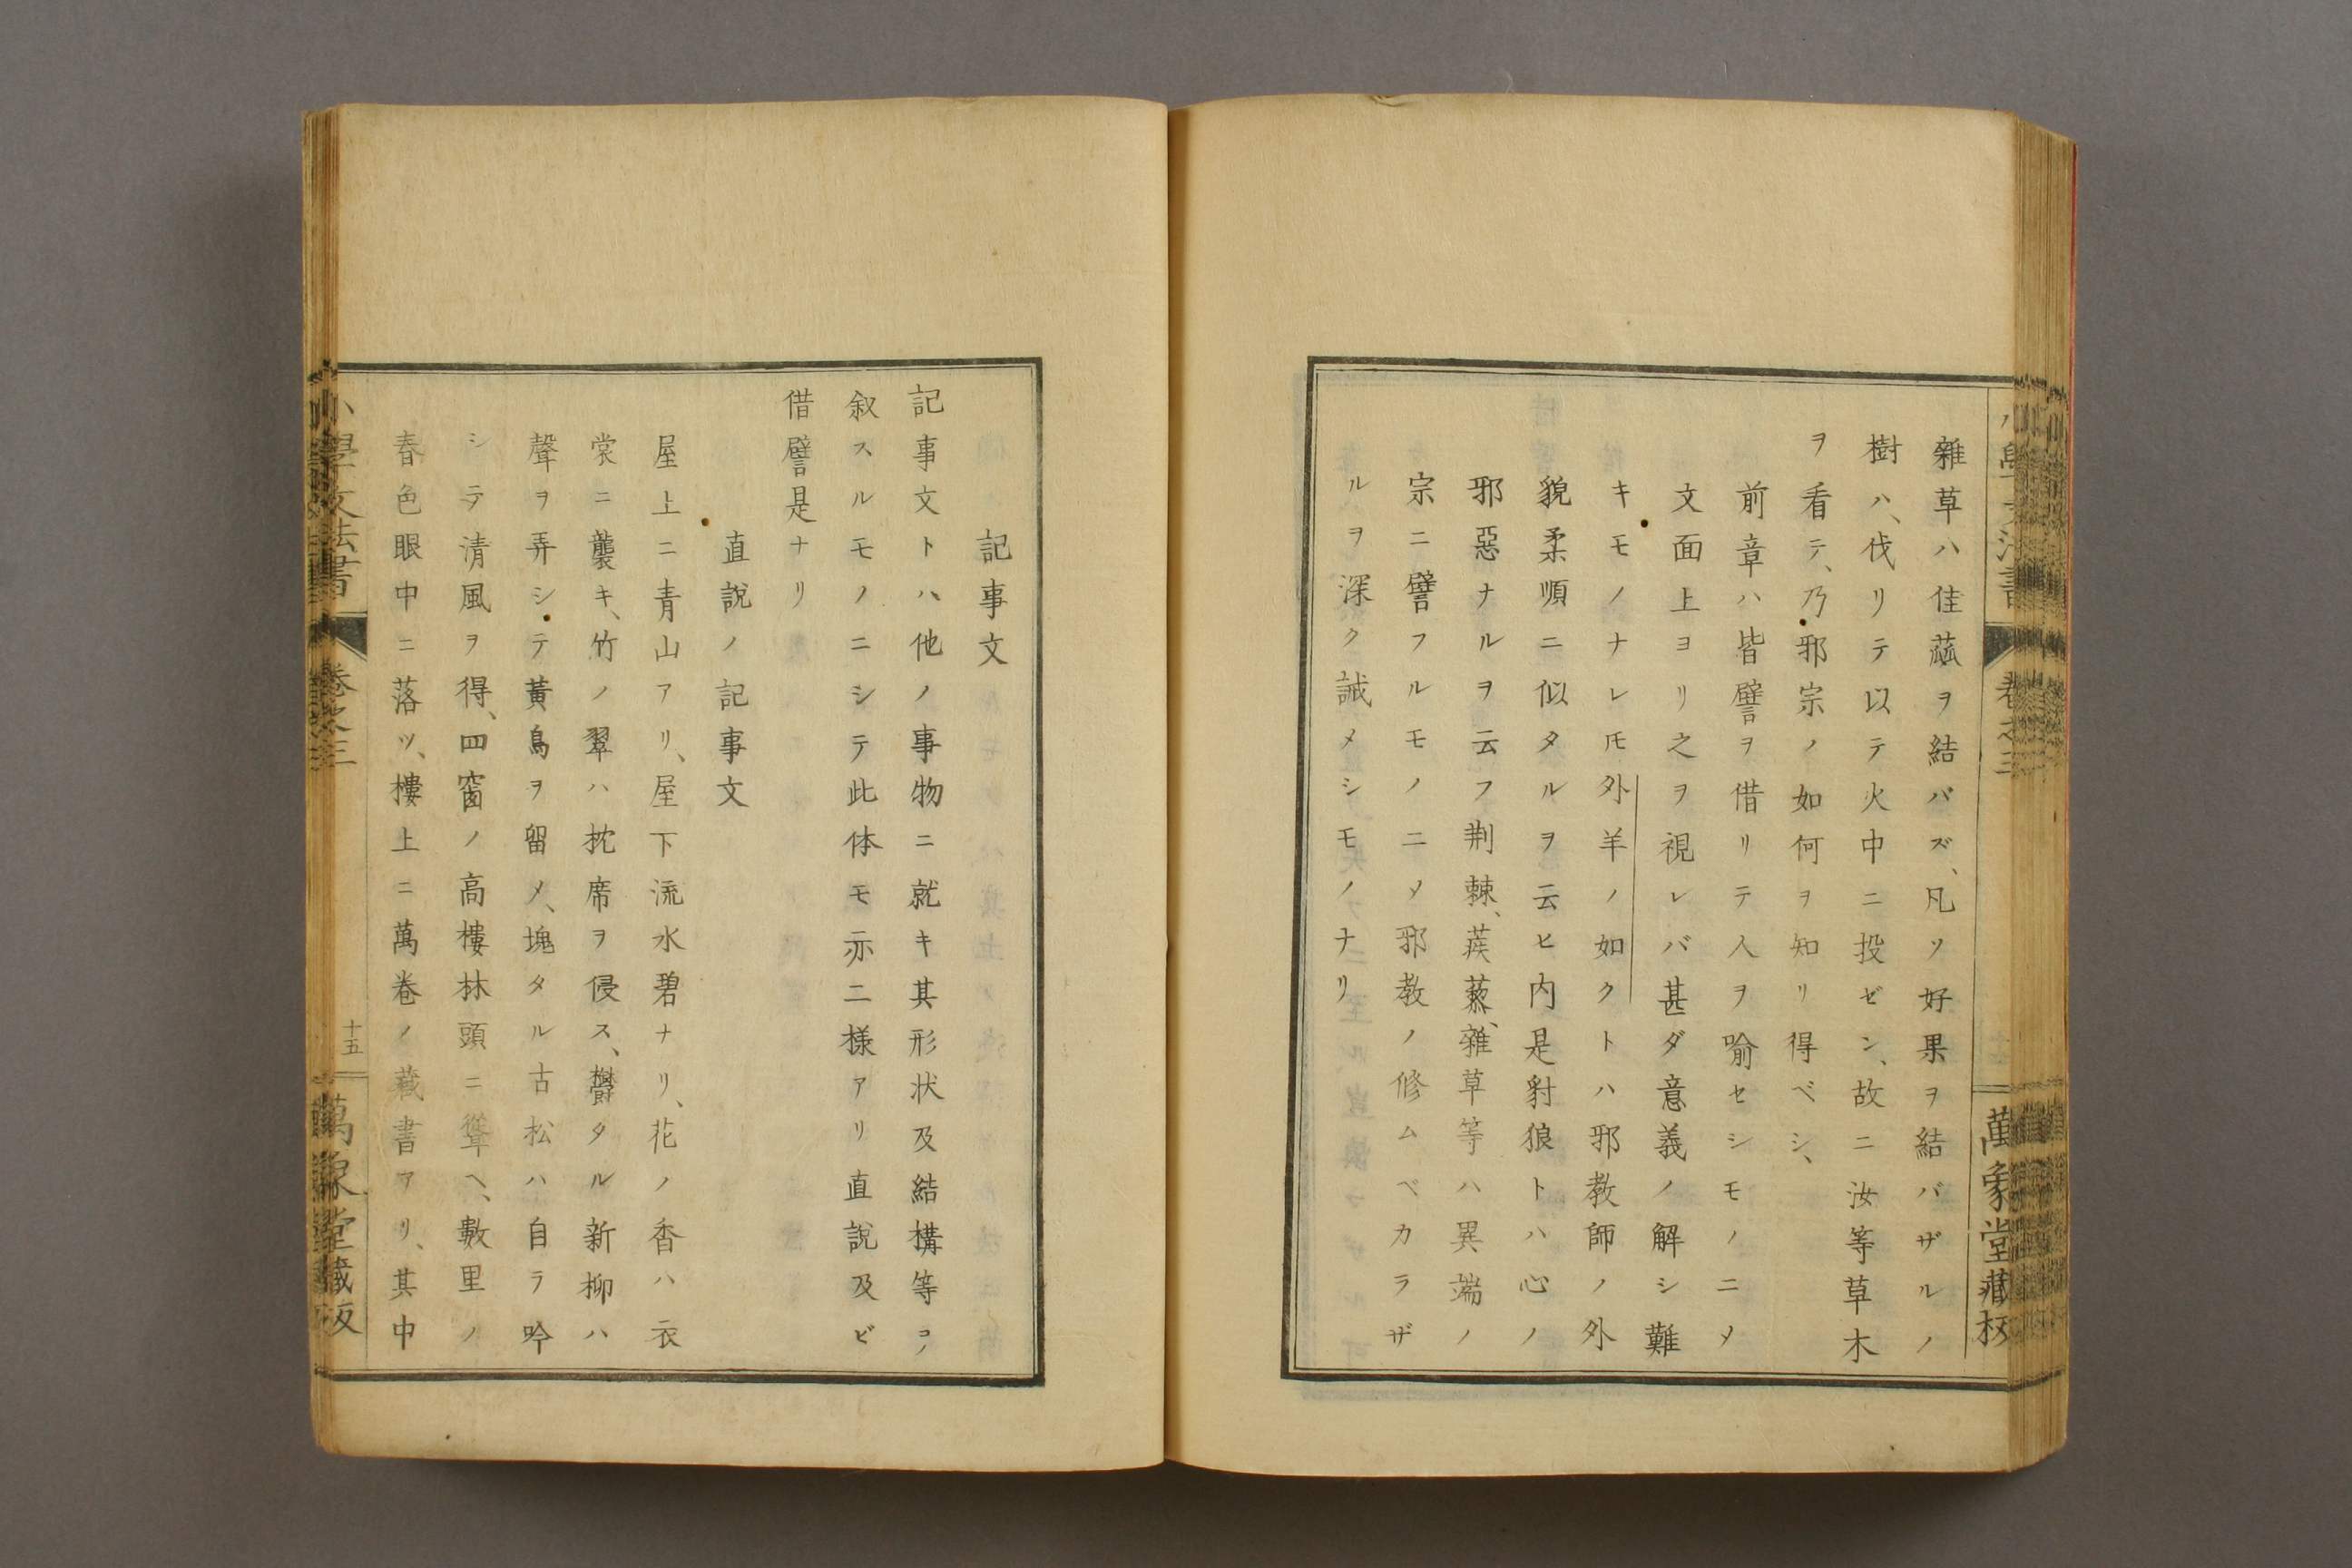 雜草ハ佳蓏ヲ結バズ、凡ソ好果ヲ結バザルノ
樹ハ、伐リテ以テ火中ニ投ゼン、故ニ汝等草木
ヲ看テ、乃邪宗ノ如何ヲ知リ得ベシ、
前章ハ皆譬ヲ借リテ人ヲ喩セシモノニメ
文面上ヨリ之ヲ視レバ甚ダ意義ノ解シ難
キモノナレ𪜈外羊ノ如クトハ邪教師ノ外
貌柔順ニ似タルヲ云ヒ内是豺狼トハ心ノ
邪惡ナルヲ云フ荆棘、蒺蔾、雜草等ハ異端ノ
宗ニ譬フルモノニメ邪教ノ修ムベカラザ
ルヲ深ク誡メシモノナリ
萬象堂藏板
記事文
記事文トハ他ノ事物ニ就キ其形状及結構等ヿ
叙スルモノニシテ此体モ亦二様アリ直説及ビ
借譬是ナリ
直説ノ記事文
屋上ニ青山アリ、屋下流水碧ナリ、花ノ香ハ衣
裳ニ襲キ、竹ノ翠ハ枕席ヲ侵ス、欝タル新柳ハ
聲ヲ弄シテ黃鳥ヲ留メ、塊タル古松ハ自ラ吟
シテ清風ヲ得、四窗ノ高樓林頭ニ聳ヘ、數里ノ
春色眼中ニ落ツ、樓上ニ萬卷ノ藏書アリ、其中
小學文法書 卷之三 十五 萬象堂藏板